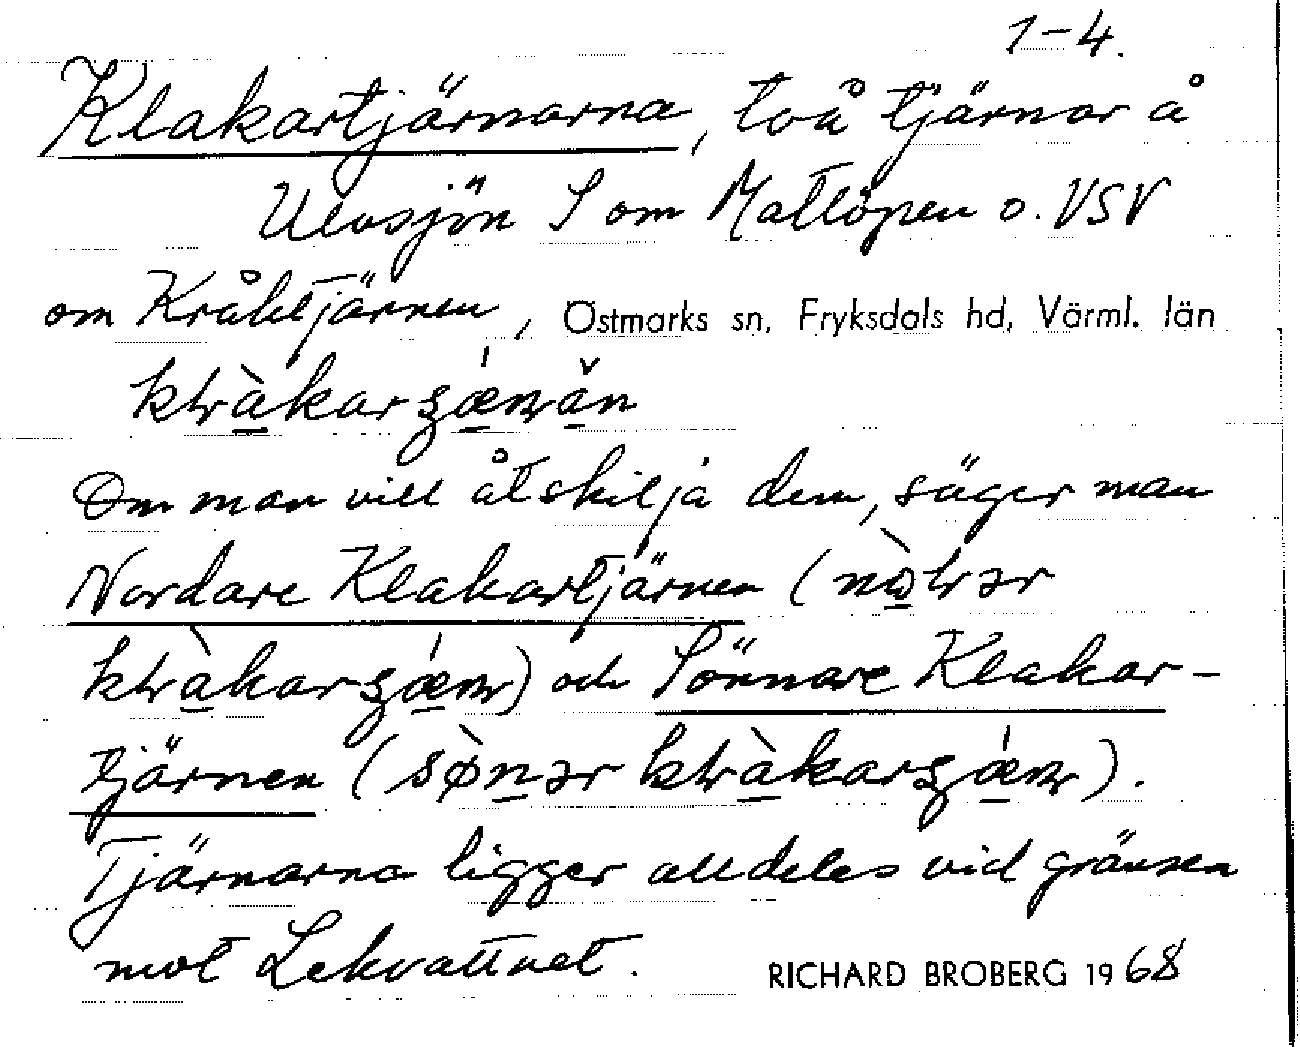 1-4.
Klakartjärnarna, två tjärnar å
Ulvsjön S om Matlöpen o. VSV
om Kråktjärnen, Östmarks sn, Fryksdals hd, Värml. län
Om man vill åtskilja dem, säger man
Nordare Klakartjärnen (
) och Sönnare Klakar-
tjärnen (
Tjärnarna ligger alldeles vid gränsen
mot Lekvattnet.
RICHARD BROBERG 1968